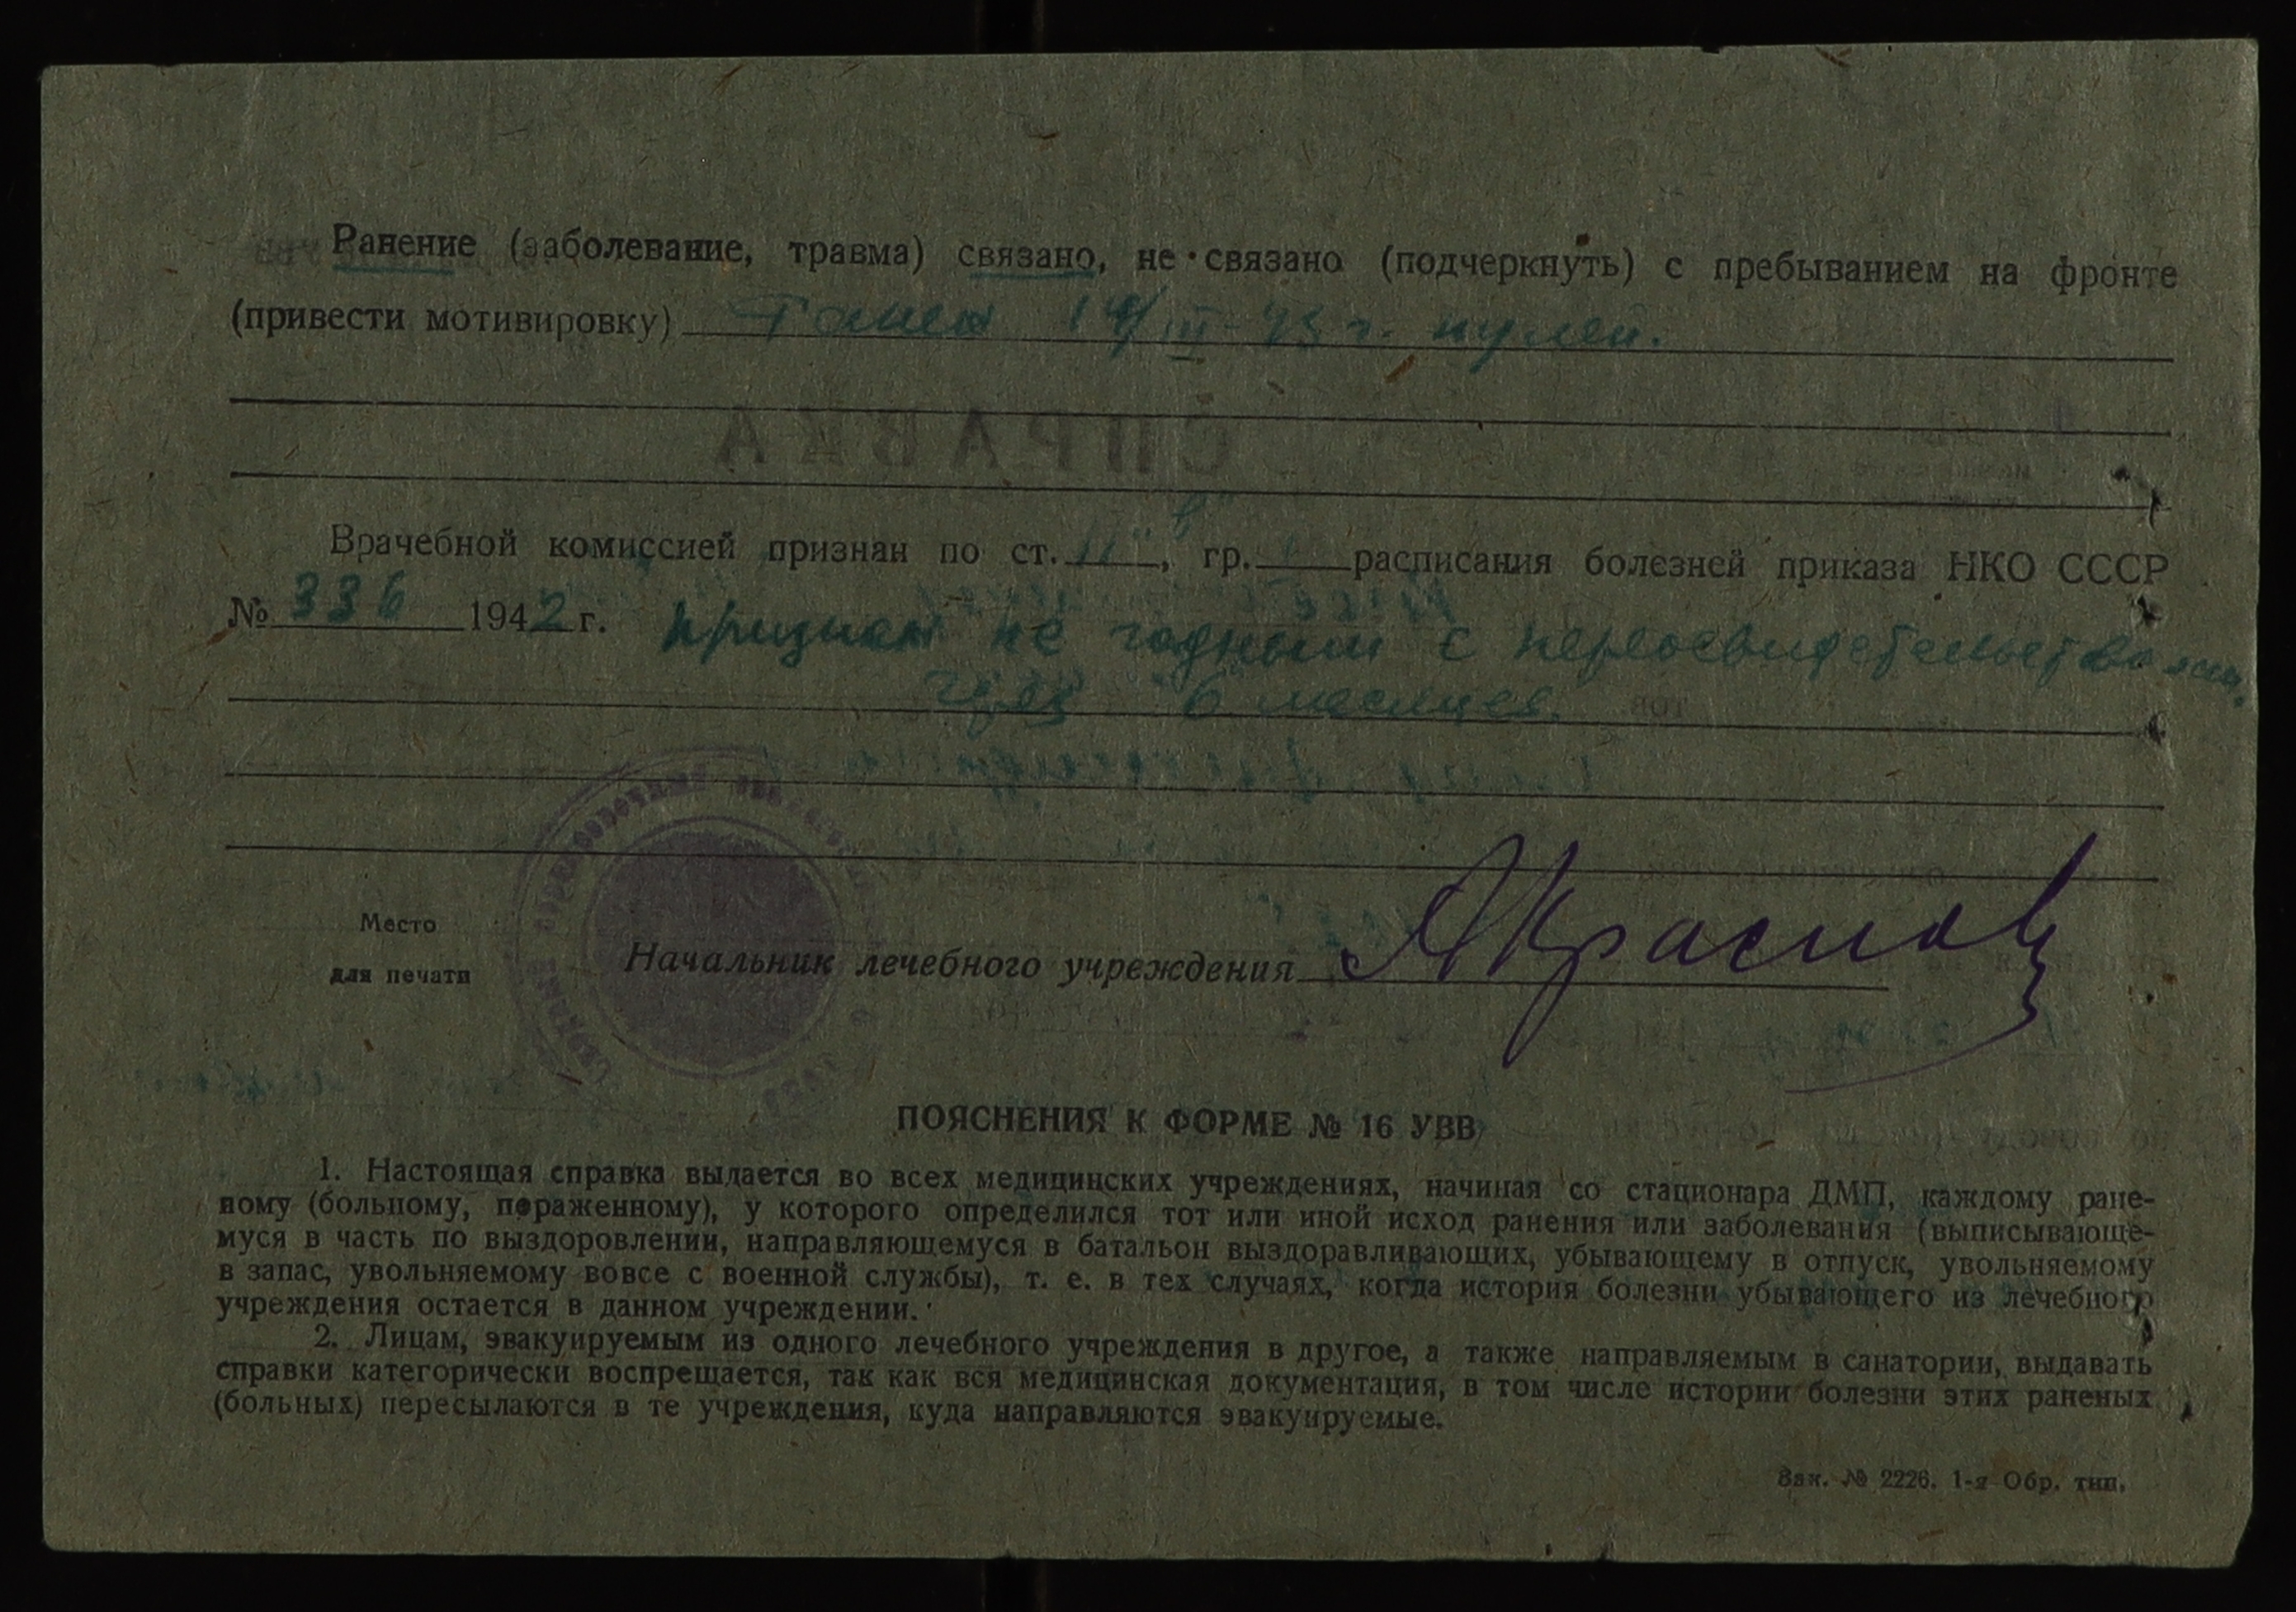 Ранение (заболевание, травма) связано, не связано (подчеркнуть) с пребыванием на фронте
(привести мотивировку) Ранен 14/III-43 г. пулей.
Врачебной комиссией признан по ст. 11 "в", гр. I расписания болезней приказа НКО СССР
№ 336 1942 г. признан не годным с переосвидетельствованием
через 6 месяцев.
Место
для печати
Начальник лечебного учреждения АКраснов
ПОЯСНЕНИЯ К ФОРМЕ № 16 УВВ
1. Настоящая справка выдается во всех медицинских учреждениях, начиная со стационара ДМП, каждому ране-
ному (больному, пораженному), у которого определился тот или иной исход ранения или заболевания (выписывающе-
муся в часть по выздоровлении, направляющемуся в батальон выздоравливающих, убывающему в отпуск, увольняемому
в запас, увольняемому вовсе с военной службы), т. е. в тех случаях, когда история болезни убывающего из лечебного
учреждения остается в данном учреждении.
2. Лицам, эвакуируемым из одного лечебного учреждения в другое, а также направляемым в санатории, выдавать
справки категорически воспрещается, так как вся медицинская документация, в том числе истории болезни этих раненых
(больных) пересылаются в те учреждения, куда направляются эвакуируемые.
Зак. № 2226. 1-я Обр. тип.